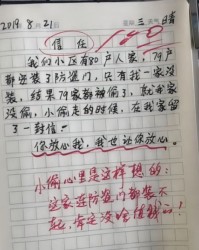 2019.8月21日 星期三 天气晴
信任
140
我的小区有80户人家，79户
都安装了防盗门，只有我一家没
装，结果79家都被偷了，就我家
没偷，小偷走的时候，在我家留
了一封信：
你放心我，我也让你放心。
小偷心里是这样想的：
这家连防盗门都装不
起，肯定没啥值钱的！